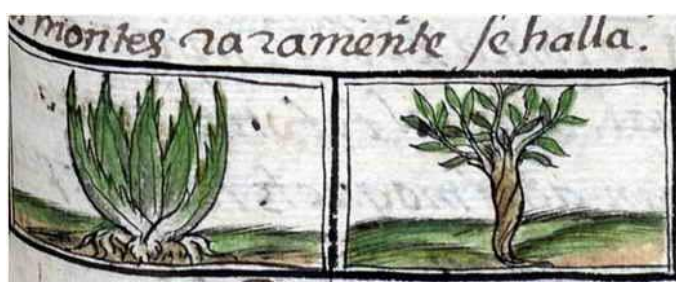 montes raramente se halla.